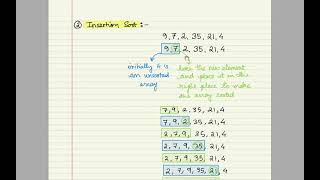 ② Insertion Sort :-
9, 7, 2, 35, 21, 4
9, 7, 2, 35, 21, 4
initially it is
an unsorted
array
take the new element
and place it in the
right place to make
the array sorted
7, 9, 2, 35, 21, 4
7, 9, 2, 35, 21, 4
2, 7, 9, 35, 21, 4
2, 7, 9, 35, 21, 4
2, 7, 9, 35, 21, 4
2, 7, 9, 35, 21, 4